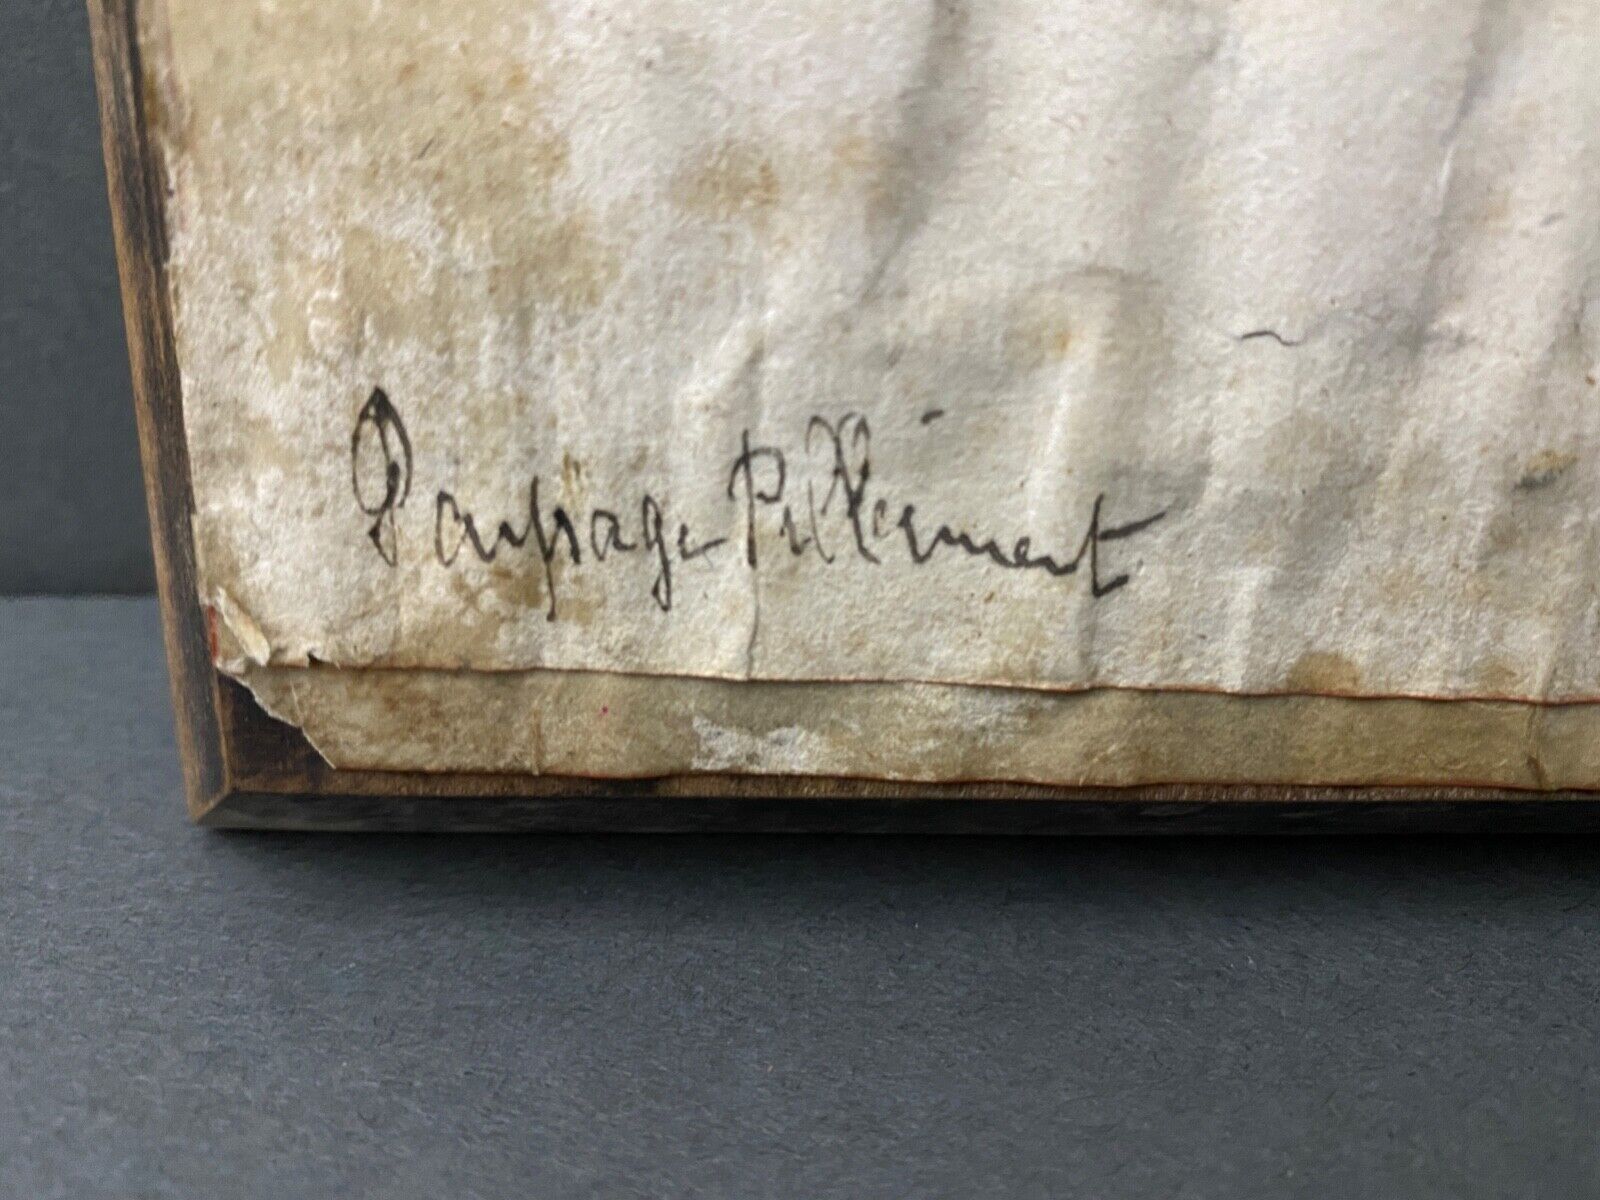 Paysage Pillement